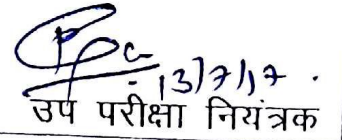 13/7/17.
उप परीक्षा नियंत्रक